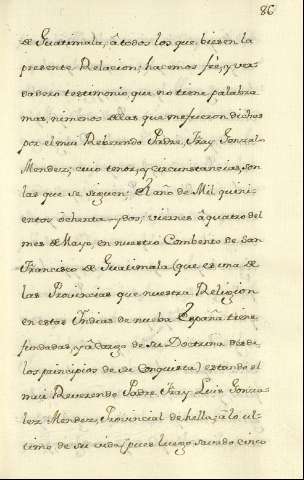 86
de Guatimala, â todos los que biesen la
presente Relacion; hacemos fé, y ver-
dadero testimonio, que no tiene palabra
mas, ni menos de las que me fueron dichas
por el mui Reberendo Padre, Fray Gonzal-
Mendez; cuio tenor, y circunstancias, son
las que se siguen: El año de Mil quini-
entos ôchenta, y dos; viernes â quatro del
mes de Mayo, en nuestro Combento de San
Francisco de Guatimala (que es una de
las Provincias que nuestra Religion
en estas Indias de nueba España tiene
fundadas, y â Cargo de su Doctrina desde
los principios de su Conquista) estando el
mui Reverendo Padre Fray Luis Gonza-
lez Mendez, Provincial de hella; â lo ul-
timo de su vida, pues luego sacado cinco